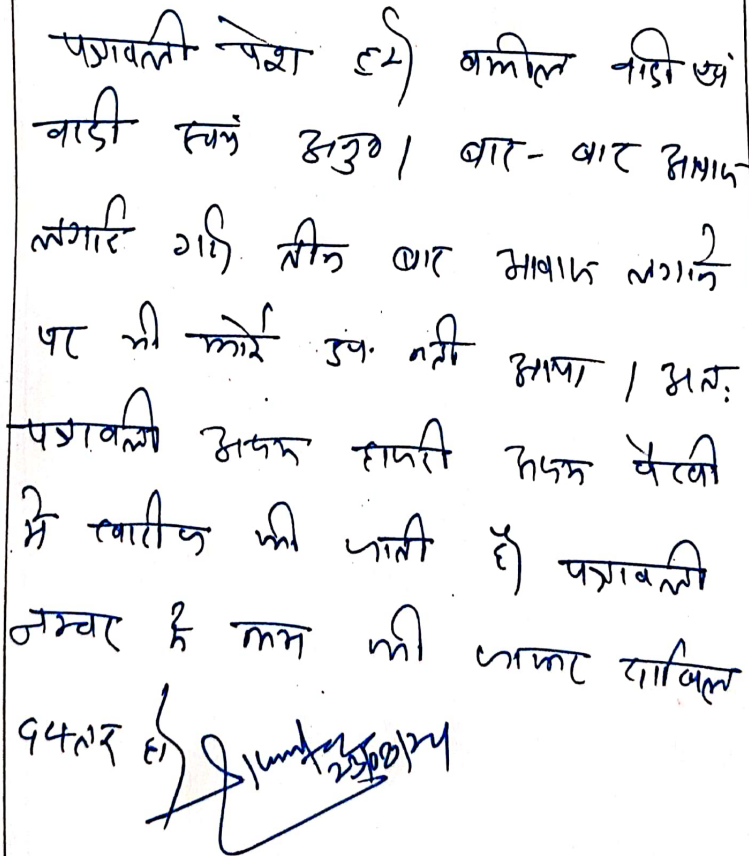 पत्रावली पेश हुई। वकील वादी एवं
वादी स्वयं अनु० । बार - बार आवाज
लगाई गई। तीन बार आवाज लगाने
पर भी कोई उप. नही आया । अतः
पत्रावली अदम हाजरी अदम पैरवी
मे खारीज की जाती है। पत्रावली
नम्बर से कम की जाकर दाखिल
दफ्तर हो।